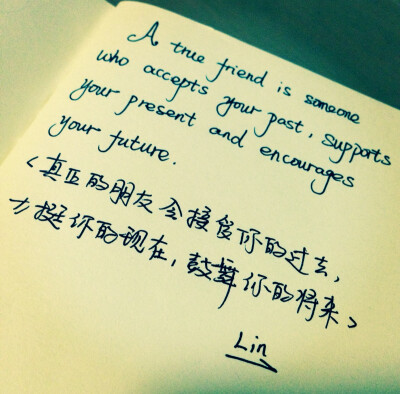 A true friend is someone
who accepts your past, supports
your present and encourages
your future.
<真正的朋友会接受你的过去,
力挺你的现在,鼓舞你的将来>
Lin